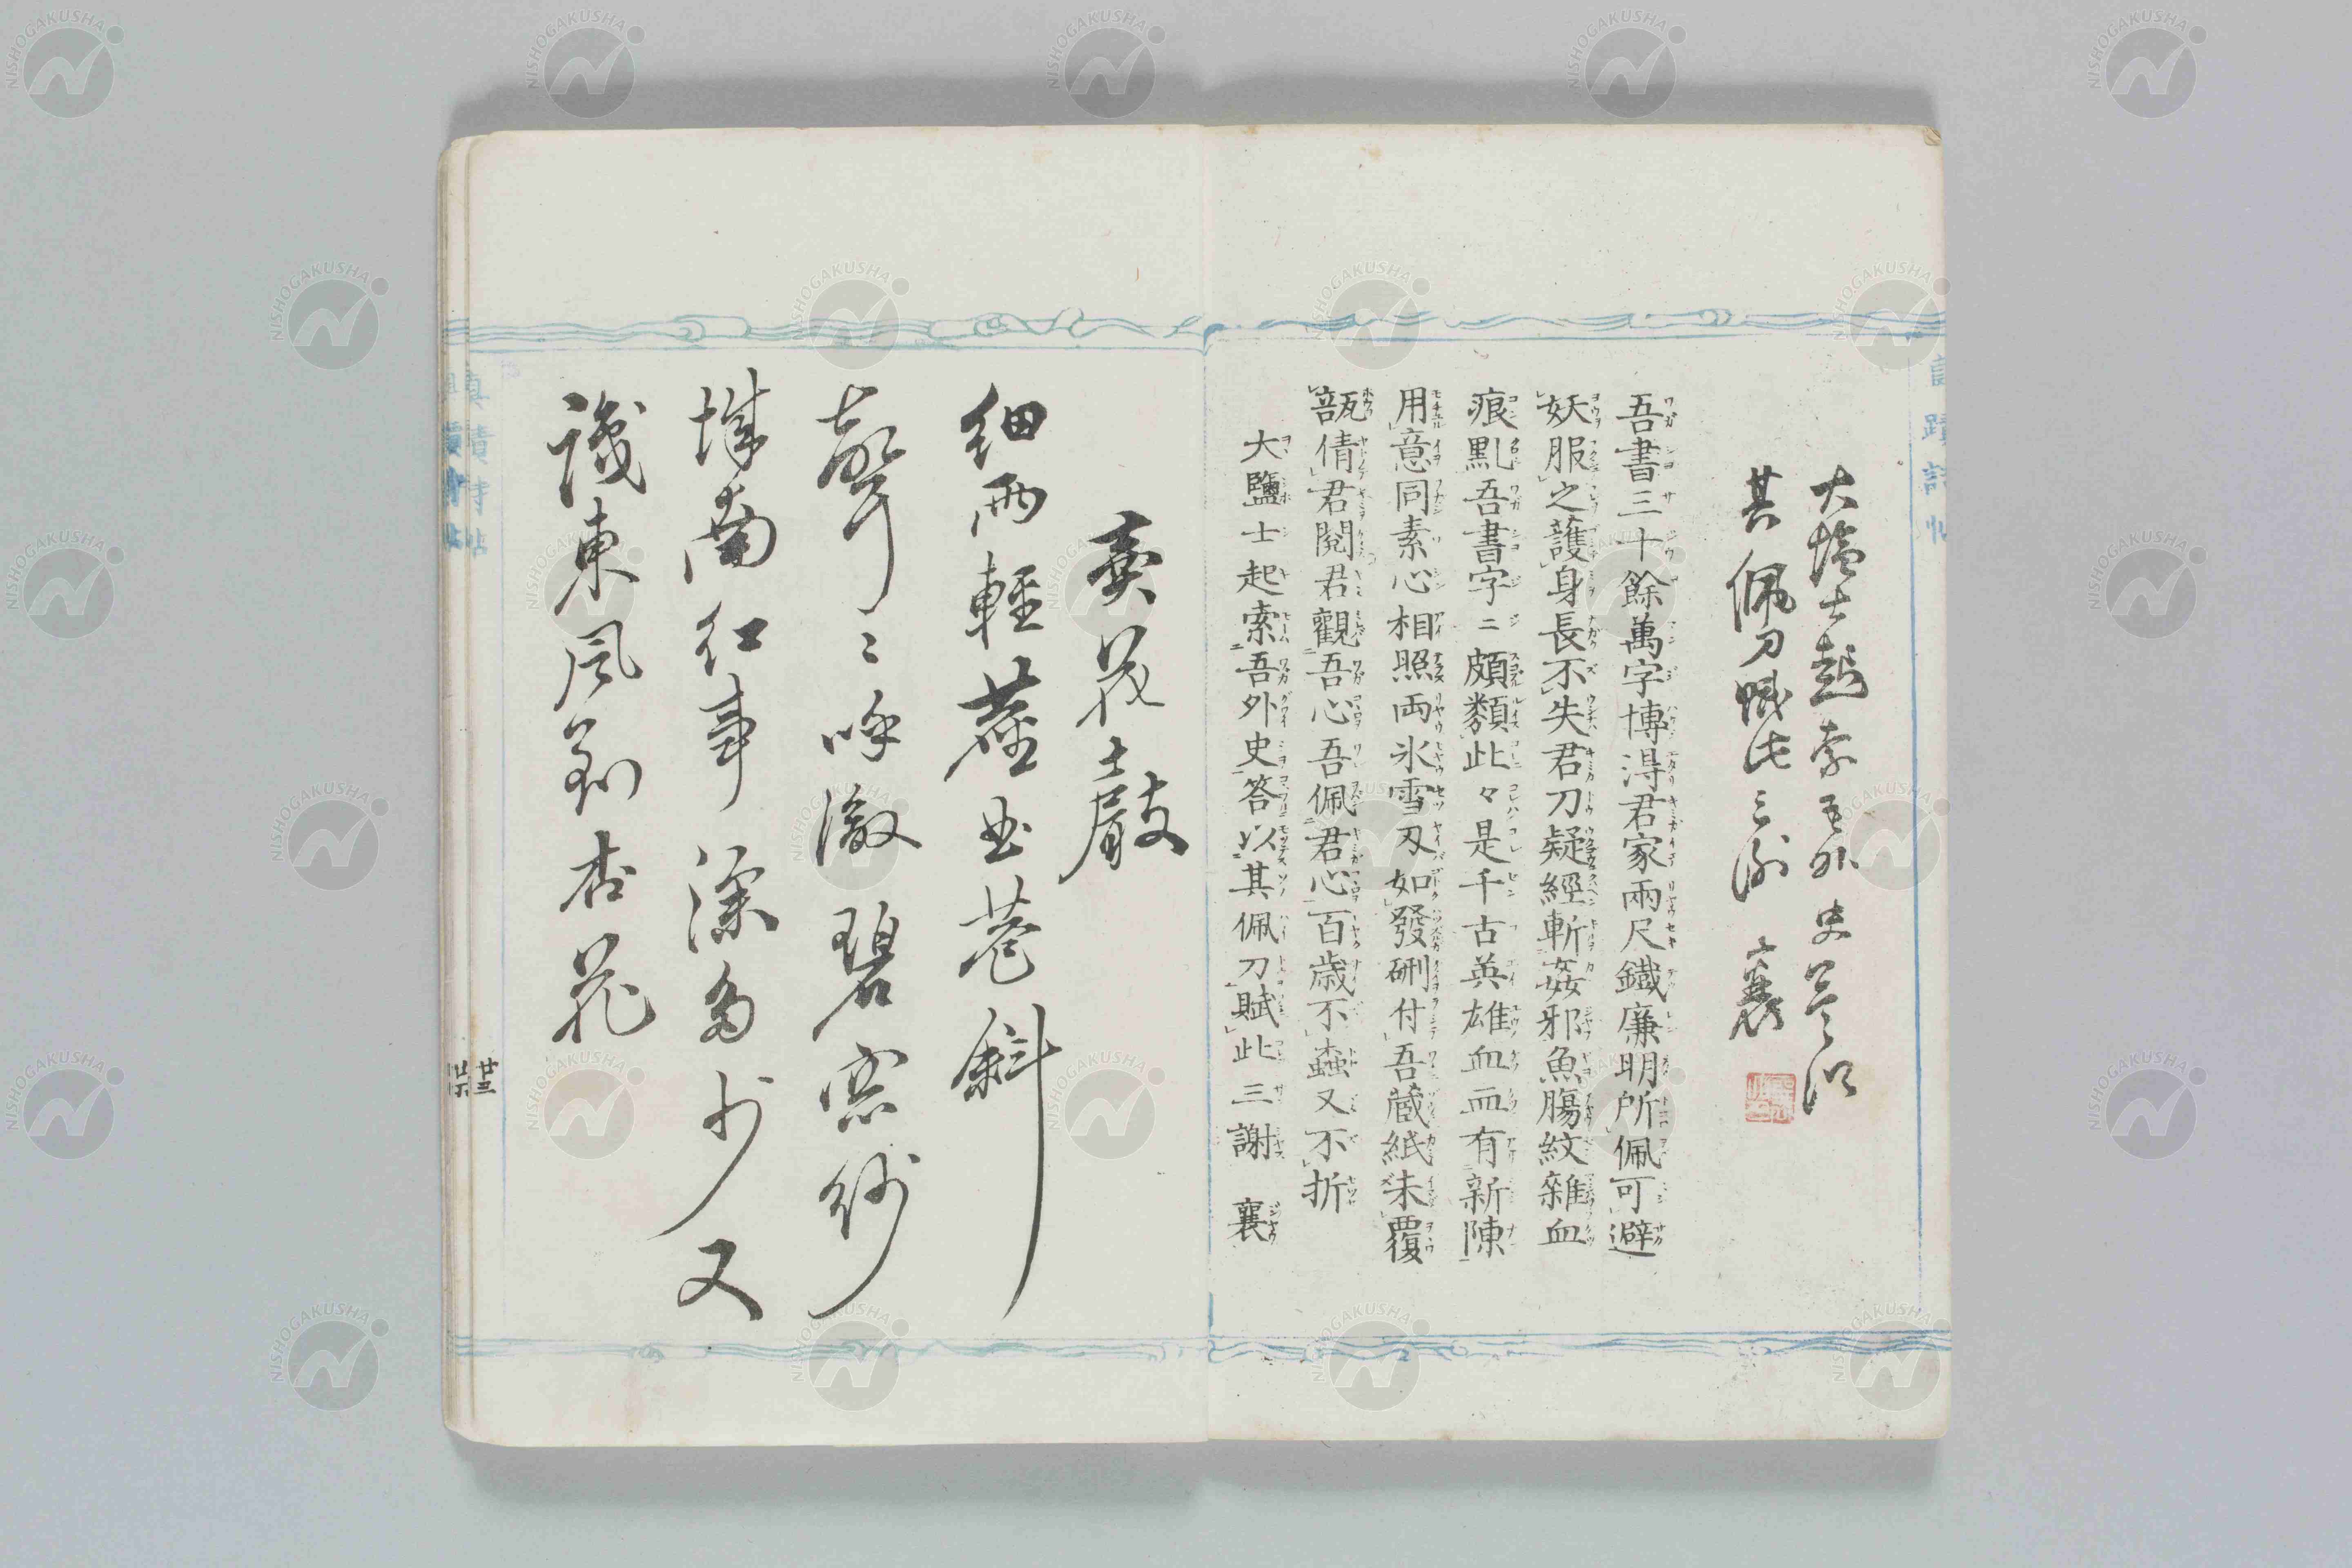 大塩士起索吾外史答以
其佩刀賦此三謝 襄
吾書三十餘萬字博淂君家兩尺鐵廉明所佩可避
妖服之護身長不失君刀疑經斬姦邪魚膓紋雜血
痕亂吾書字〻頗類此々是千古英雄血血有新陳
用意同素心相照両氷雪刄如發硎付吾蔵紙未覆
瓿倩君閱君觀吾心吾佩君心百歲不蝕又不折
大鹽士起索吾外史答以其佩刀賦此三謝 襄
賣花声
細雨輕塵曲巷斜
聲〻呼澈碧窓紗
城南紅事深多少又
識東風到杏花
真蹟詩帖
廿三
NISHOGAKUSHA